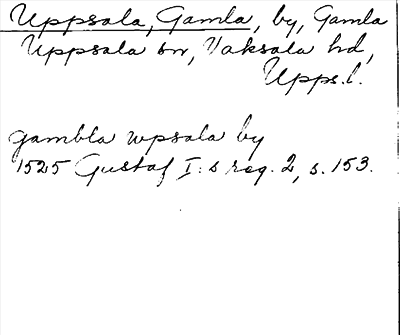 Uppsala, Gamla, by, Gamla
Uppsala sn, Vaksala hd,
Upps. l.
gambla wpsala by
1525 Gustaf I:s reg. 2, s. 153.